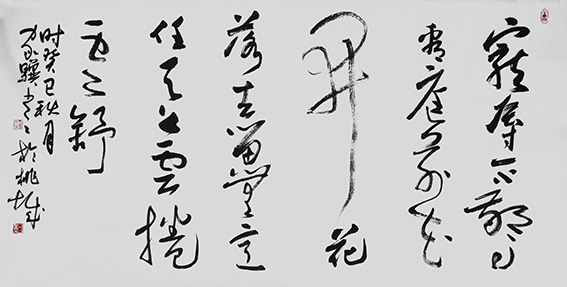 寵辱不驚
看庭前花
开花
落去留無意
任天上雲捲
云舒
时癸巳秋月
骥书於桃城